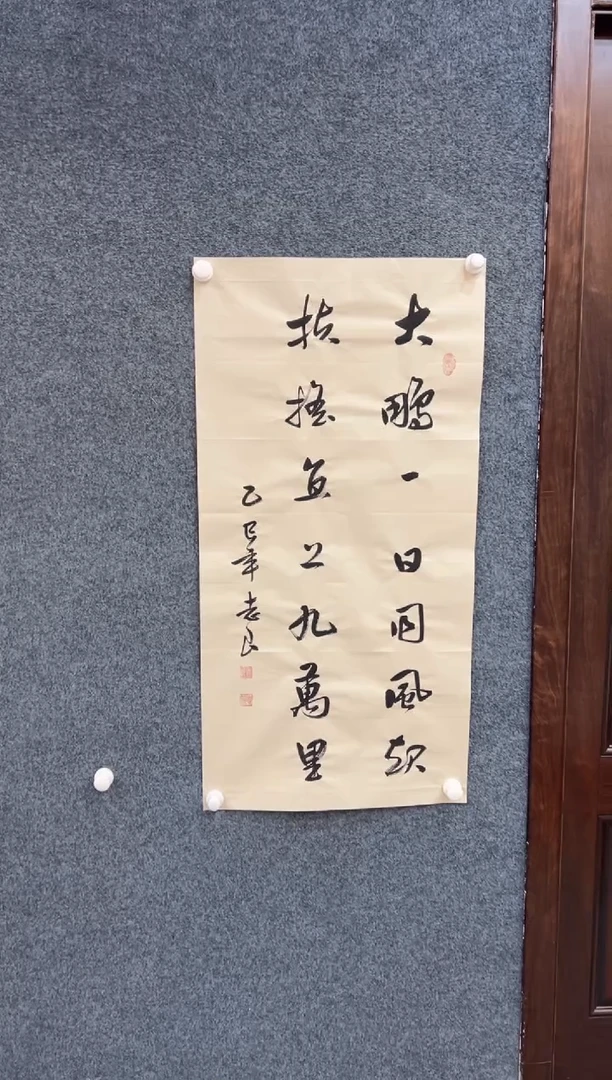 大鹏一日同風起
扶摇直上九萬里
乙巳年志良